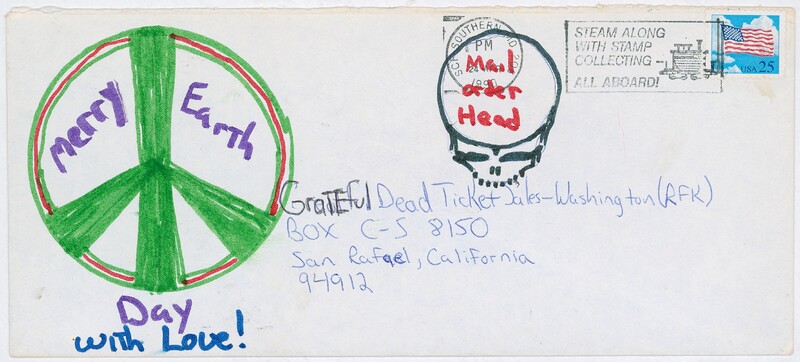 Merry Earth
Day
with Love!
Mail
order
Head
SOUTHERN MD
PM
1990
STEAM ALONG
WITH STAMP
COLLECTING -
ALL ABOARD!
USA 25
Grateful Dead Ticket Sales-Washington (RFK)
BOX C-S 8150
San Rafael, California
94912